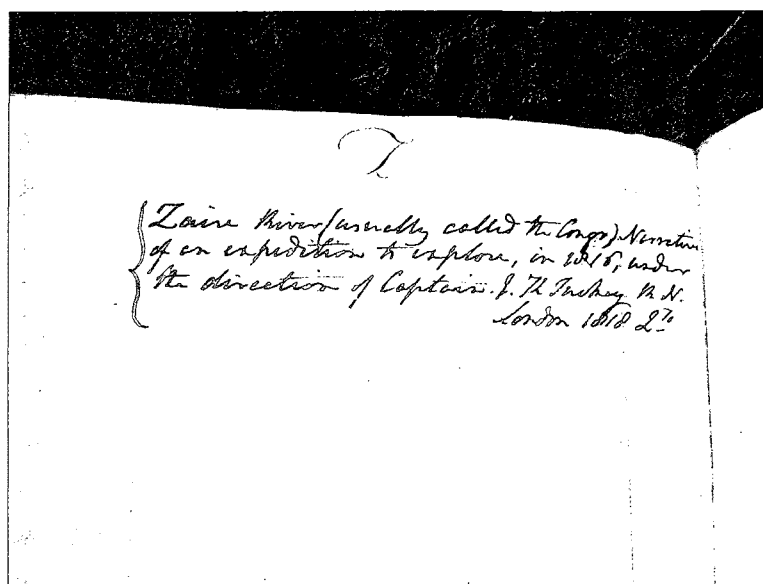 Z
Zaire River (usually called the Congo) Narrative
of an expedition to explore, in 1816, under
the direction of Captain J. K. Tuckey R. N.
London 1818